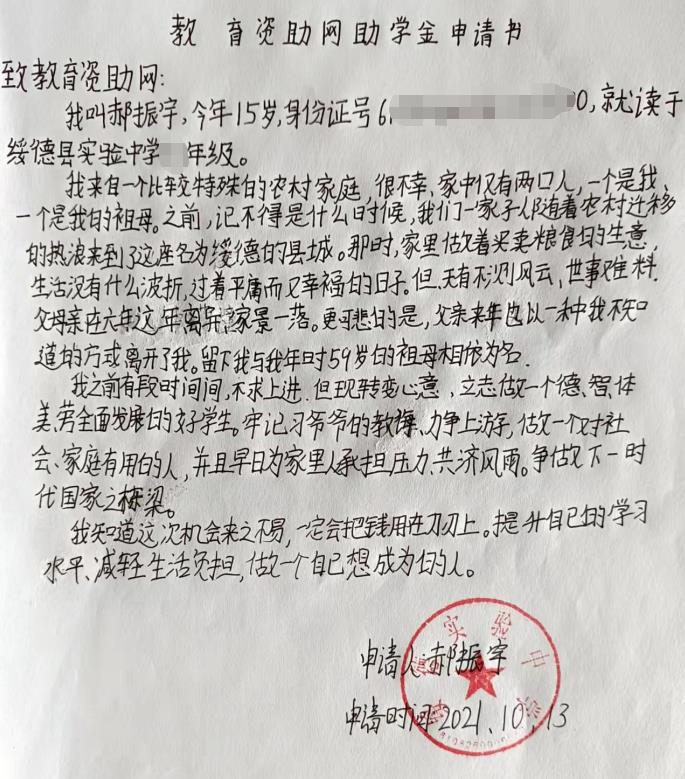 教育资助网助学金申请书
致教育资助网:
我叫郝振宇,今年15岁,身份证号6 0,就读于
绥德县实验中学 年级。
我来自一个比较特殊的农村家庭,很不幸、家中仅有两口人,一个是我、
一个是我的祖母。之前,记不得是什么时候,我们一家子伴随着农村迁移
的热浪来到了这座名为绥德的县城。那时,家里做着买卖粮食的生意,
生活没有什么波折,过着平庸而又幸福的日子。但,天有不测风云,世事难料.
父母亲在六年这年离异,家景一落。更可悲的是,父亲来年也以一种我不知
道的方式离开了我。留下我与我年时59岁的祖母相依为名.
我之前有段时间间,不求上进.但现转变心意,立志做一个德、智、体
美、劳全面发展的好学生。牢记习爷爷的教诲、力争上游,做一个对社
会、家庭有用的人,并且早日为家里人承担压力、共济风雨。争做下一时
代国家之栋梁。
我知道这次机会来之不易,一定会把钱用在刀刃上。提升自己的学习
水平、减轻生活负担,做一个自己想成为的人。
申请人:郝振宇
申请时间2021、10、13
实验中